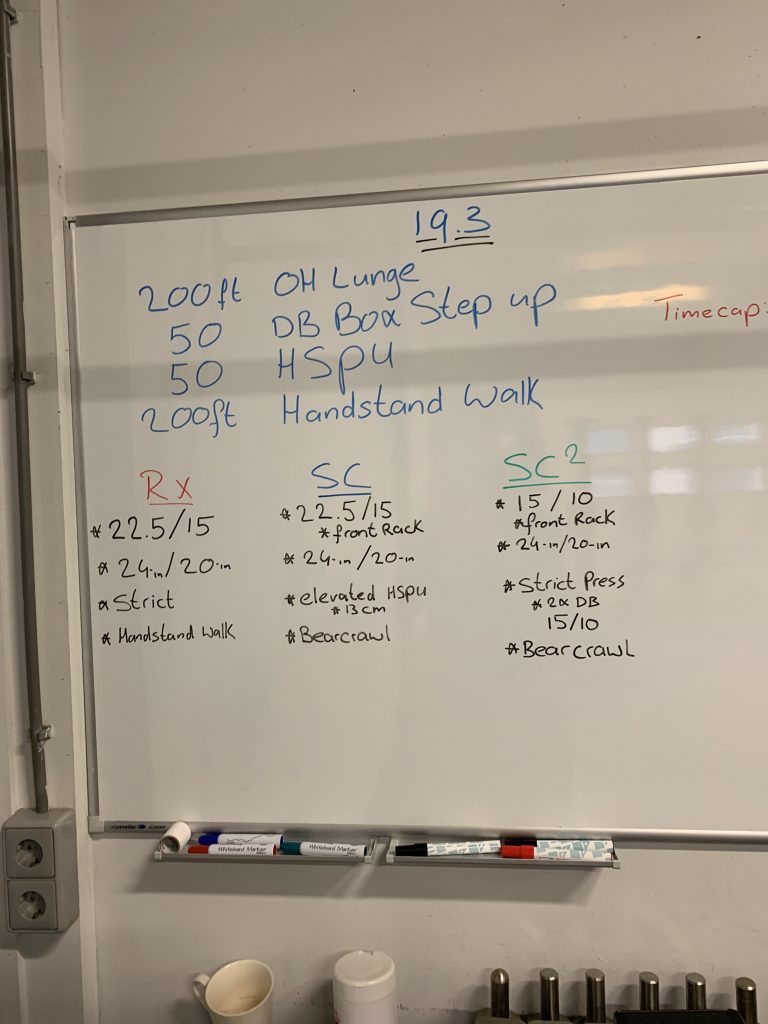 19.3
200ft OH Lunge
50 DB Box Step up
50 HSPU
200ft Handstand Walk
Timecap:
Rx
* 22.5/15
* 24-in/20-in
* Strict
* Handstand Walk
SC
* 22.5/15
* front Rack
* 24-in/20-in
* elevated HSPU
* 13cm
* Bearcrawl
SC²
* 15/10
* front Rack
* 24-in/20-in
* Strict Press
* 2x DB
15/10
* Bearcrawl
Legamaster ECONOMY
Whiteboard Marker
Whiteboard Marker